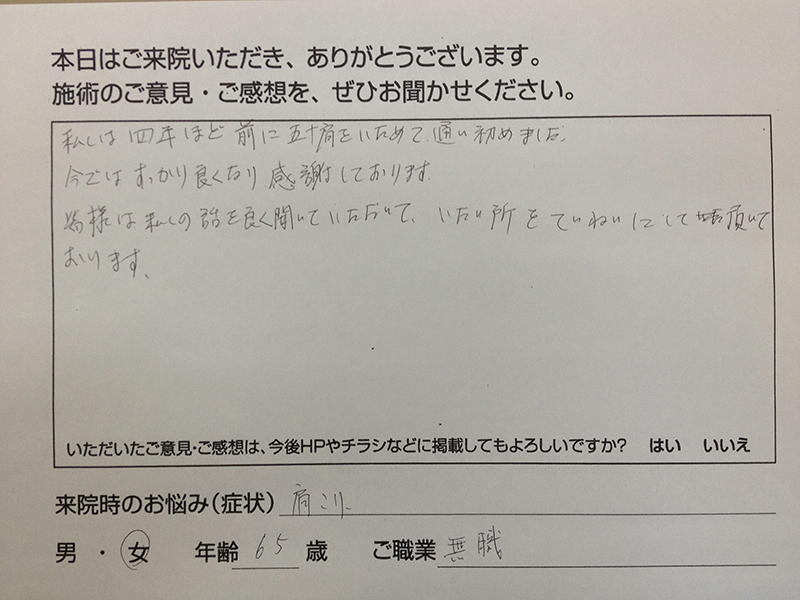 本日はご来院いただき、ありがとうございます。
施術のご意見・ご感想を、ぜひお聞かせください。
私しは四年ほど前に五十肩をいためて、通い初めました。
今ではすっかり良くなり感謝しております。
皆様は私しの話を良く聞いていただいて、いたい所をていねいにして頂いて
おります、
いただいたご意見・ご感想は、今後HPやチラシなどに掲載してもよろしいですか? はい いいえ
来院時のお悩み(症状) 肩こり、
男 ・ 女 年齢 65 歳 ご職業 無職